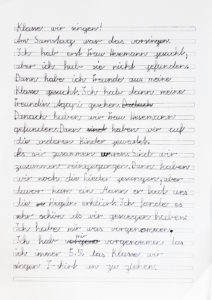 Klasse wir singen!
Am Samstag war das vorsingen.
Ich hab erst Frau Hesemann gesucht,
aber ich hab sie nicht gefunden.
Dann habe ich Freunde aus meine
Klasse gesucht. Ich hab dann meine
Freundin gesehen.
Danach haben wir Frau Hesemann
gefunden. Dann haben wir auf
die anderen Kinder gewartet.
Als wir zusammen waren sind wir
zusammen reingegangen. Dann haben
wir noch die Lieder gesungen aber
davor kam ein Mann er hat uns
die Regeln erklärt. Ich fande es
sehr schön da wir gesungen haben.
Ich habe mir was vorgenommen.
Ich hab mir vorgenommen das
ich immer das Klasse wir
singen T-shirt an zu ziehen.